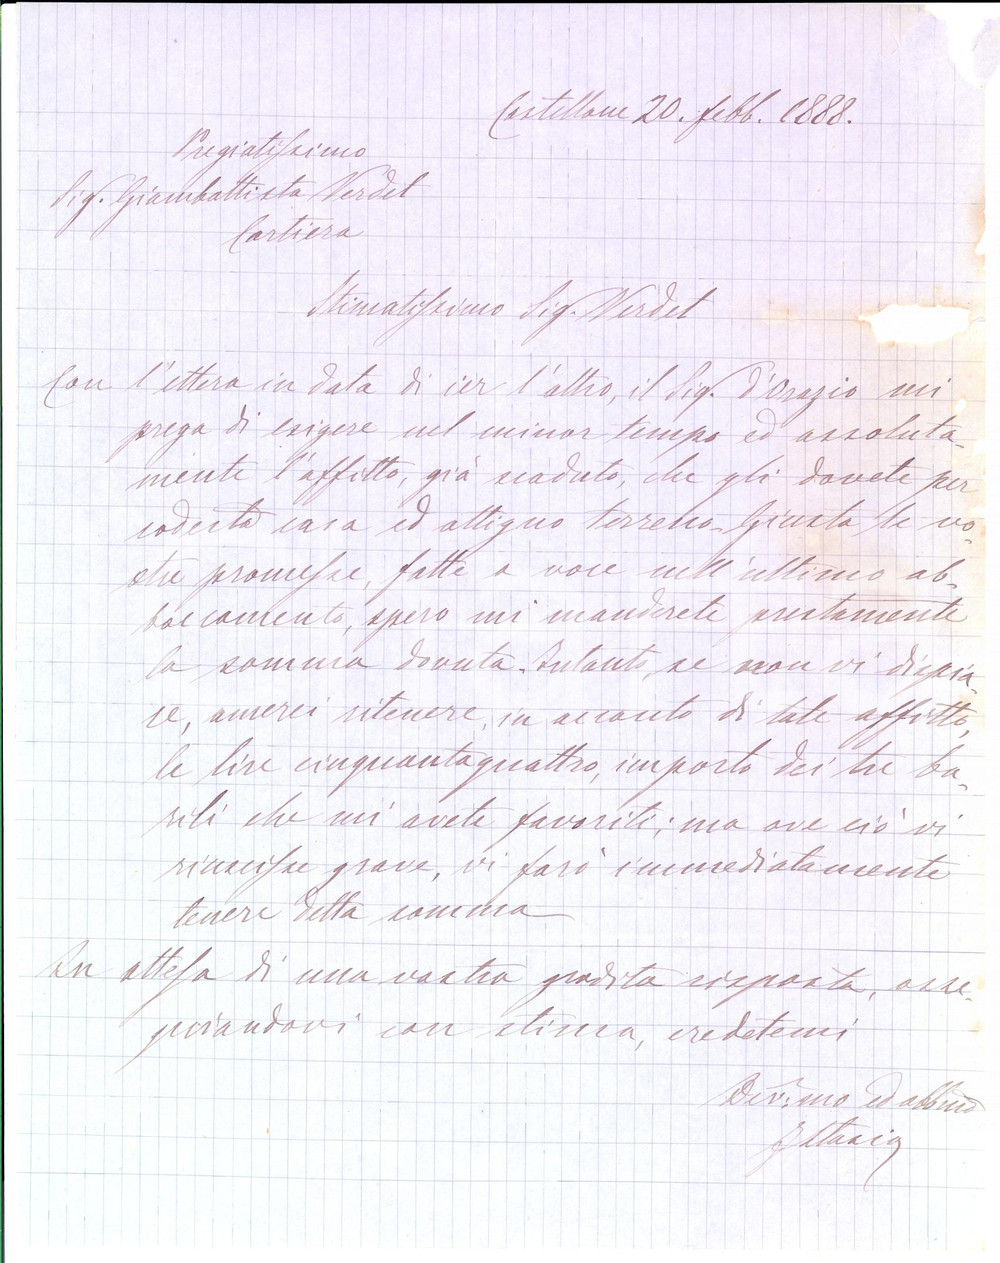 Castellone 20. febb. 1888.
Pregiatissimo
Sig. Giambattista Verdet
Cartiera
Stimatissimo Sig. Verdet
Con l'ettera in data di ier l'altro, il Sig. d'Orazio mi
prega di esigere nel minor tempo ed assoluta-
mente l'affitto, già scaduto, che gli dovete per
codesta casa ed attiguo terreno. Giusta le vo-
stre promesse, fatte a voce nell'ultimo ab-
boccamento, spero mi manderete prestamente
la somma dovuta. Intanto, se non vi dispia-
ce, amerei ritenere, in acconto di tale affitto,
le lire cinquantaquattro, importo dei tre ba-
rili che mi avete favoriti; ma ove ciò vi
riuscisse grave, vi farò immediatamente
tenere detta somma
In attesa di una vostra gradita risposta, osse-
quiandovi con stima, credetemi
Dev.mo ed obb.mo